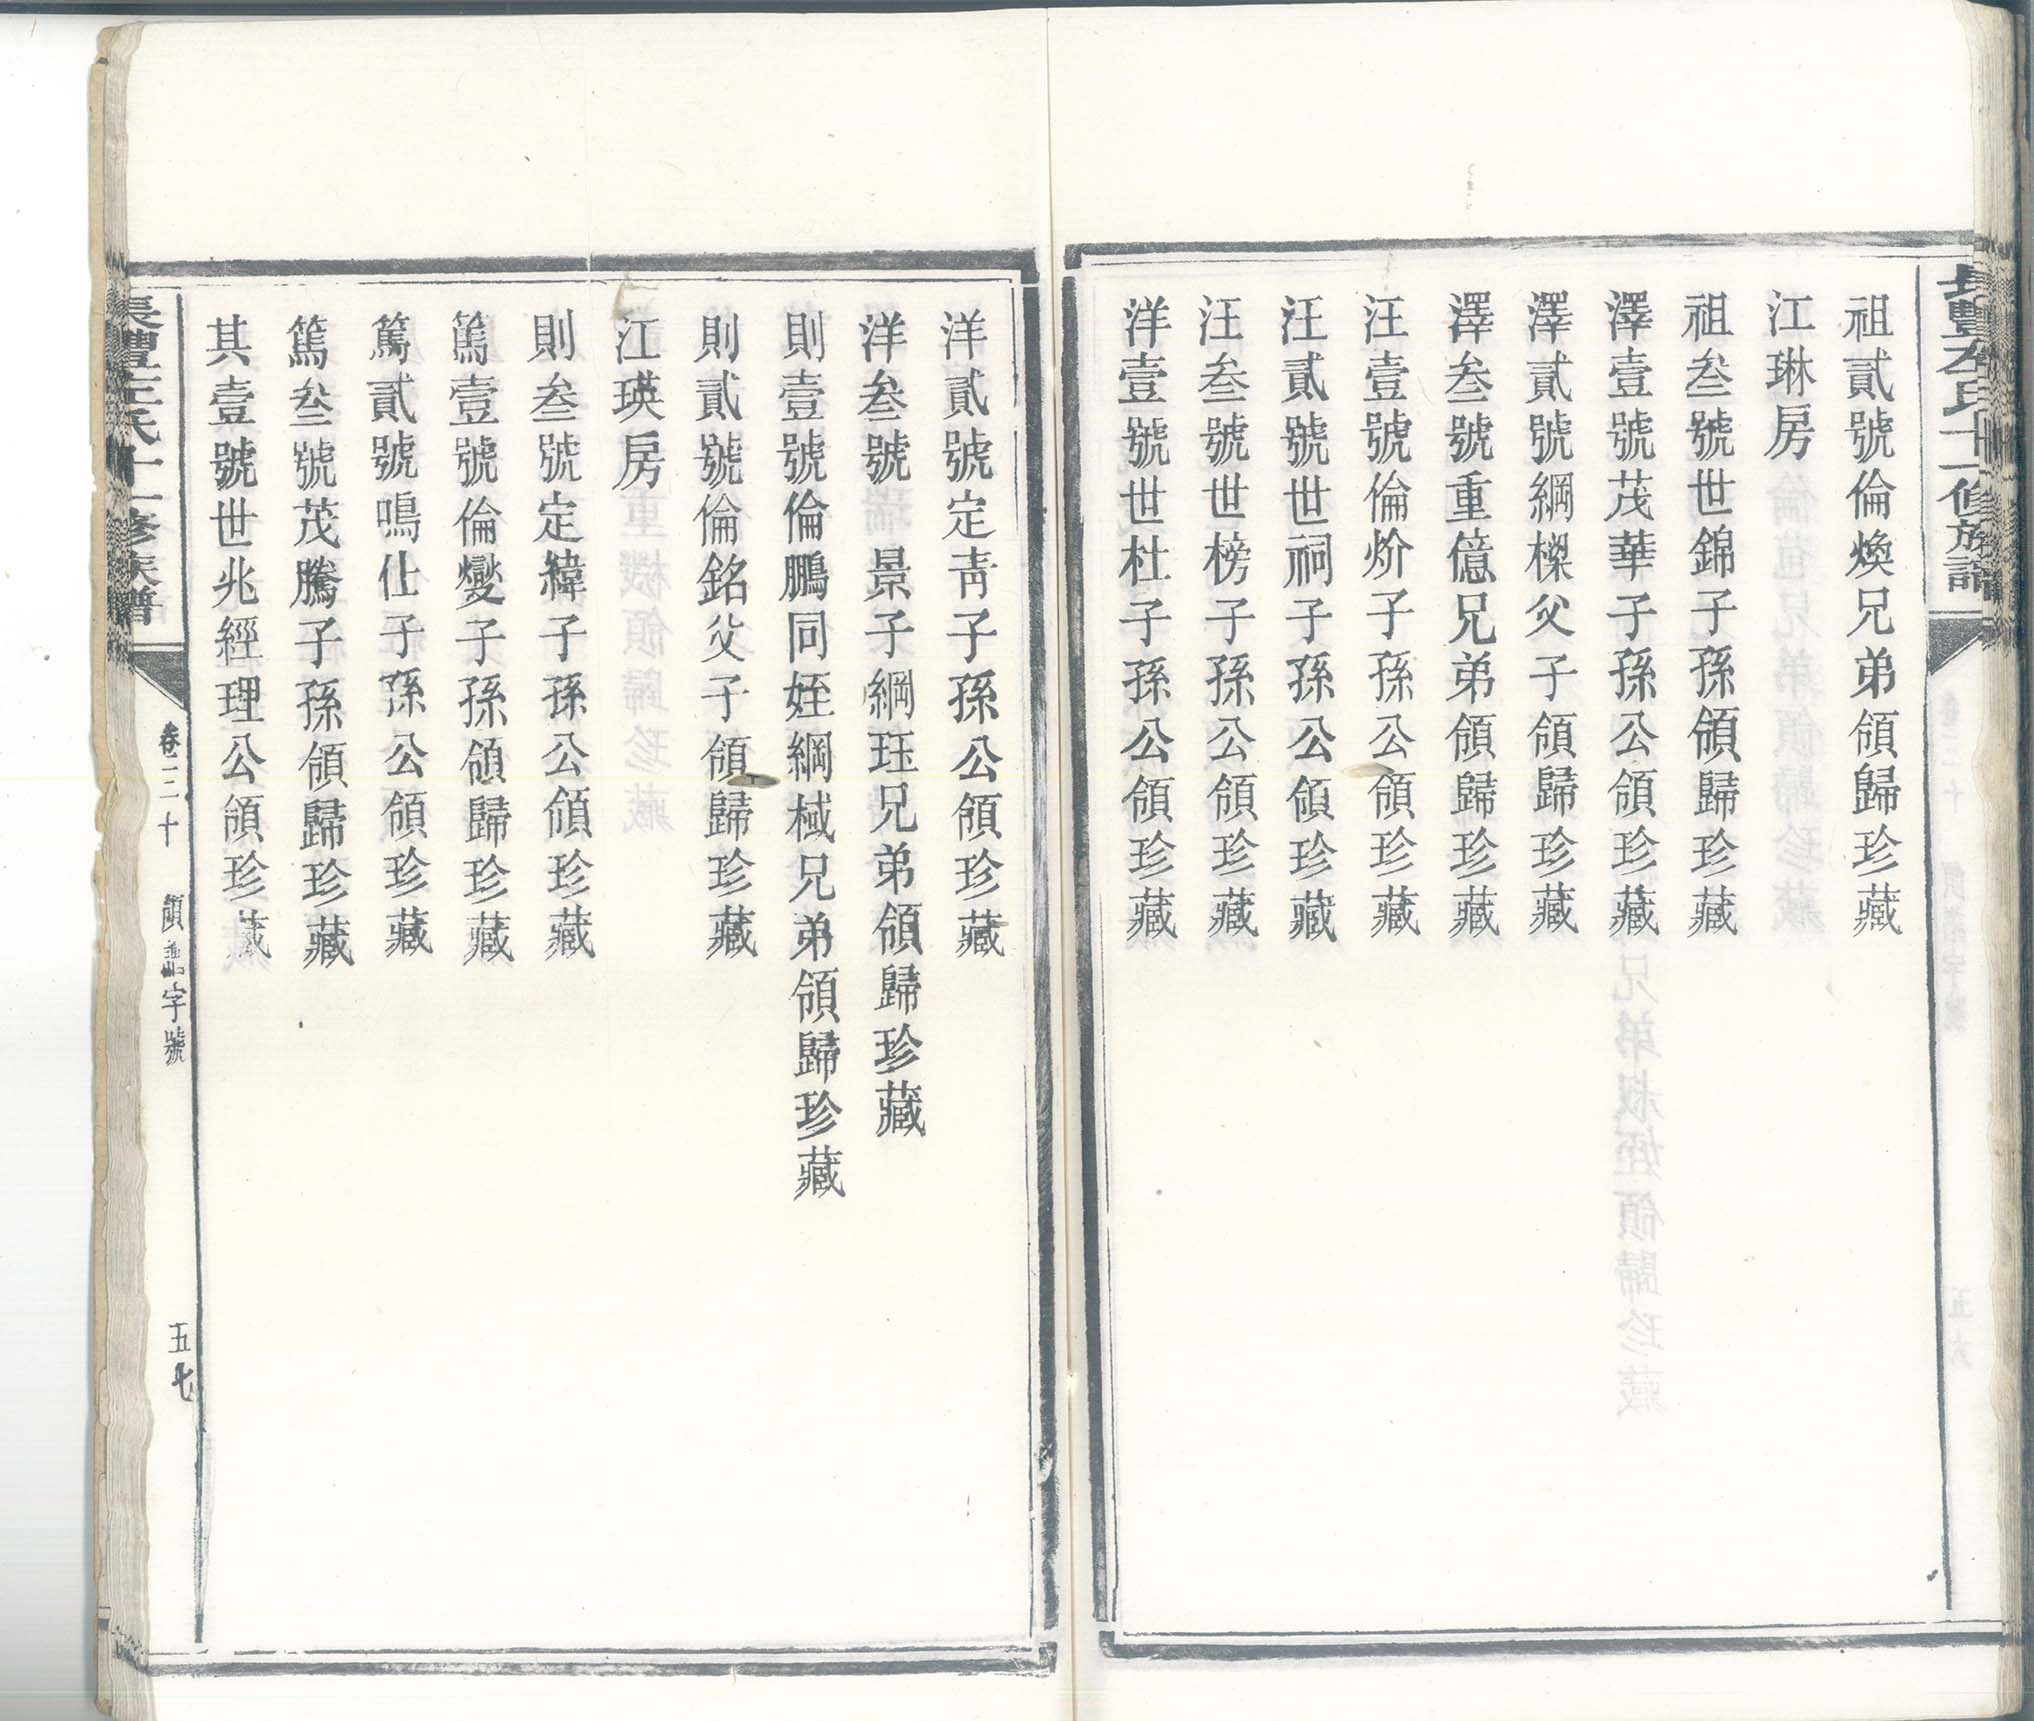 祖貳號倫煥兄弟領歸珍藏
江琳房
祖叁號世錦子孫領歸珍藏
澤壹號茂華子孫公領珍藏
澤貳號綱櫟父子領歸珍藏
澤叁號重億兄弟領歸珍藏
汪壹號倫炌子孫公領珍藏
汪貳號世祠子孫公領珍藏
汪叁號世榜子孫公領珍藏
洋壹號世杜子孫公領珍藏
洋貳號定青子孫公領珍藏
洋叁號 景子綱珏兄弟領歸珍藏
則壹號倫鵬同姪綱棫兄弟領歸珍藏
則貳號倫銘父子領歸珍藏
江瑛房
則叁號定緯子孫公領珍藏
篤壹號倫燮子孫領歸珍藏
篤貳號鳴仕子孫公領珍藏
篤叁號茂騰子孫領歸珍藏
其壹號世兆經理公領珍藏
卷三十 領譜字號 五七